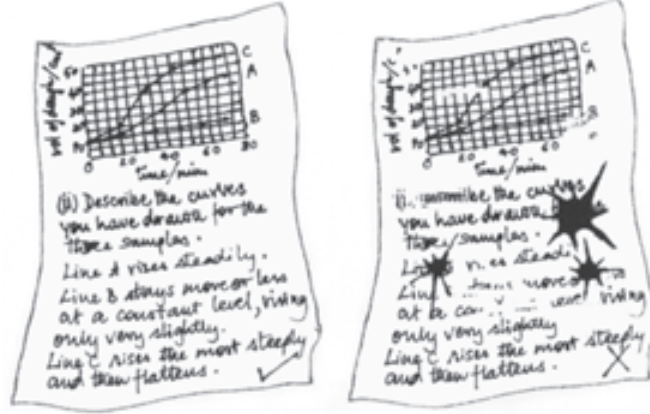 vol of dough/cm³
50
C
A
B
0 20 40 60 80
time/min
(ii) Describe the curves
you have drawn for the
three samples.
Line A rises steadily.
Line B stays more or less
at a constant level, rising
only very slightly.
Line C rises the most steeply
and then flattens.
vol of dough/c
50
C
A
B
0 20 40 60
time/min
the curves
you have drawn
three samples.
rises
move
at a rising
only very slightly
Line C rises the most steeply
and then flattens.